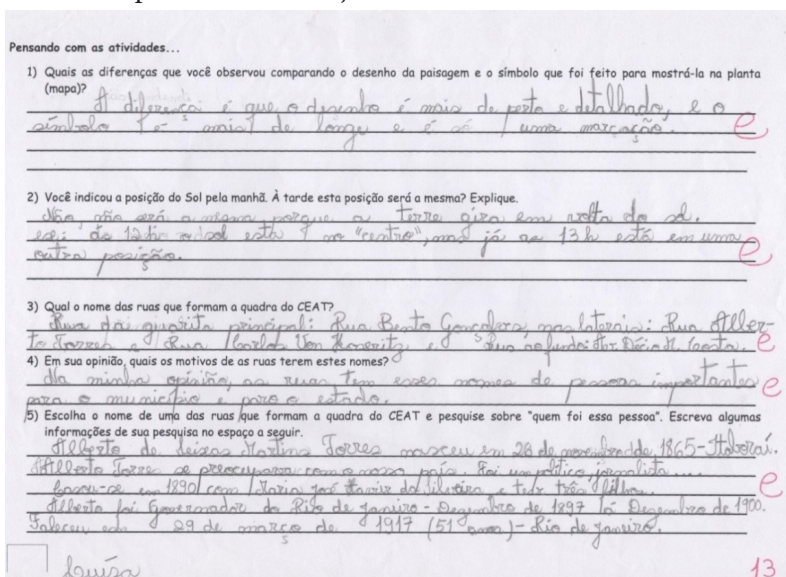 Pensando com as atividades...
1) Quais as diferenças que você observou comparando o desenho da paisagem e o símbolo que foi feito para mostrá-la na planta
(mapa)?
A diferença é que o desenho é mais de perto e detalhado, e o
símbolo é mais de longe e é só uma marcação. e
2) Você indicou a posição do Sol pela manhã. À tarde esta posição será a mesma? Explique.
Não, não será a mesma porque a terra gira em volta do sol.
ex: às 12h o sol está no "centro", mas já as 13h está em uma
outra posição. e
3) Qual o nome das ruas que formam a quadra do CEAT?
Rua da guarita principal: Rua Bento Gonçalves, nas laterais: Rua Alber-
to Torres e Rua Carlos Von Koseritz e Rua no fundo: e
4) Em sua opinião, quais os motivos de as ruas terem estes nomes?
Na minha opinião, as ruas tem esses nomes de pessoas importantes
para o município e para o estado. e
5) Escolha o nome de uma das ruas que formam a quadra do CEAT e pesquise sobre "quem foi essa pessoa". Escreva algumas
informações de sua pesquisa no espaço a seguir.
Alberto de Seixas Martins Torres nasceu em 26 de novembro de 1865 - Itaboraí.
Alberto Torres se preocupava com o nosso país. Foi um político jornalista...
Casou-se em 1890 com Maria José Xavier da Silveira e teve três filhos. e
Alberto foi Governador do Rio de Janeiro - Dezembro de 1897 à Dezembro de 1900.
Faleceu em 29 de março de 1917 (51 anos) - Rio de Janeiro.
Luísa
13